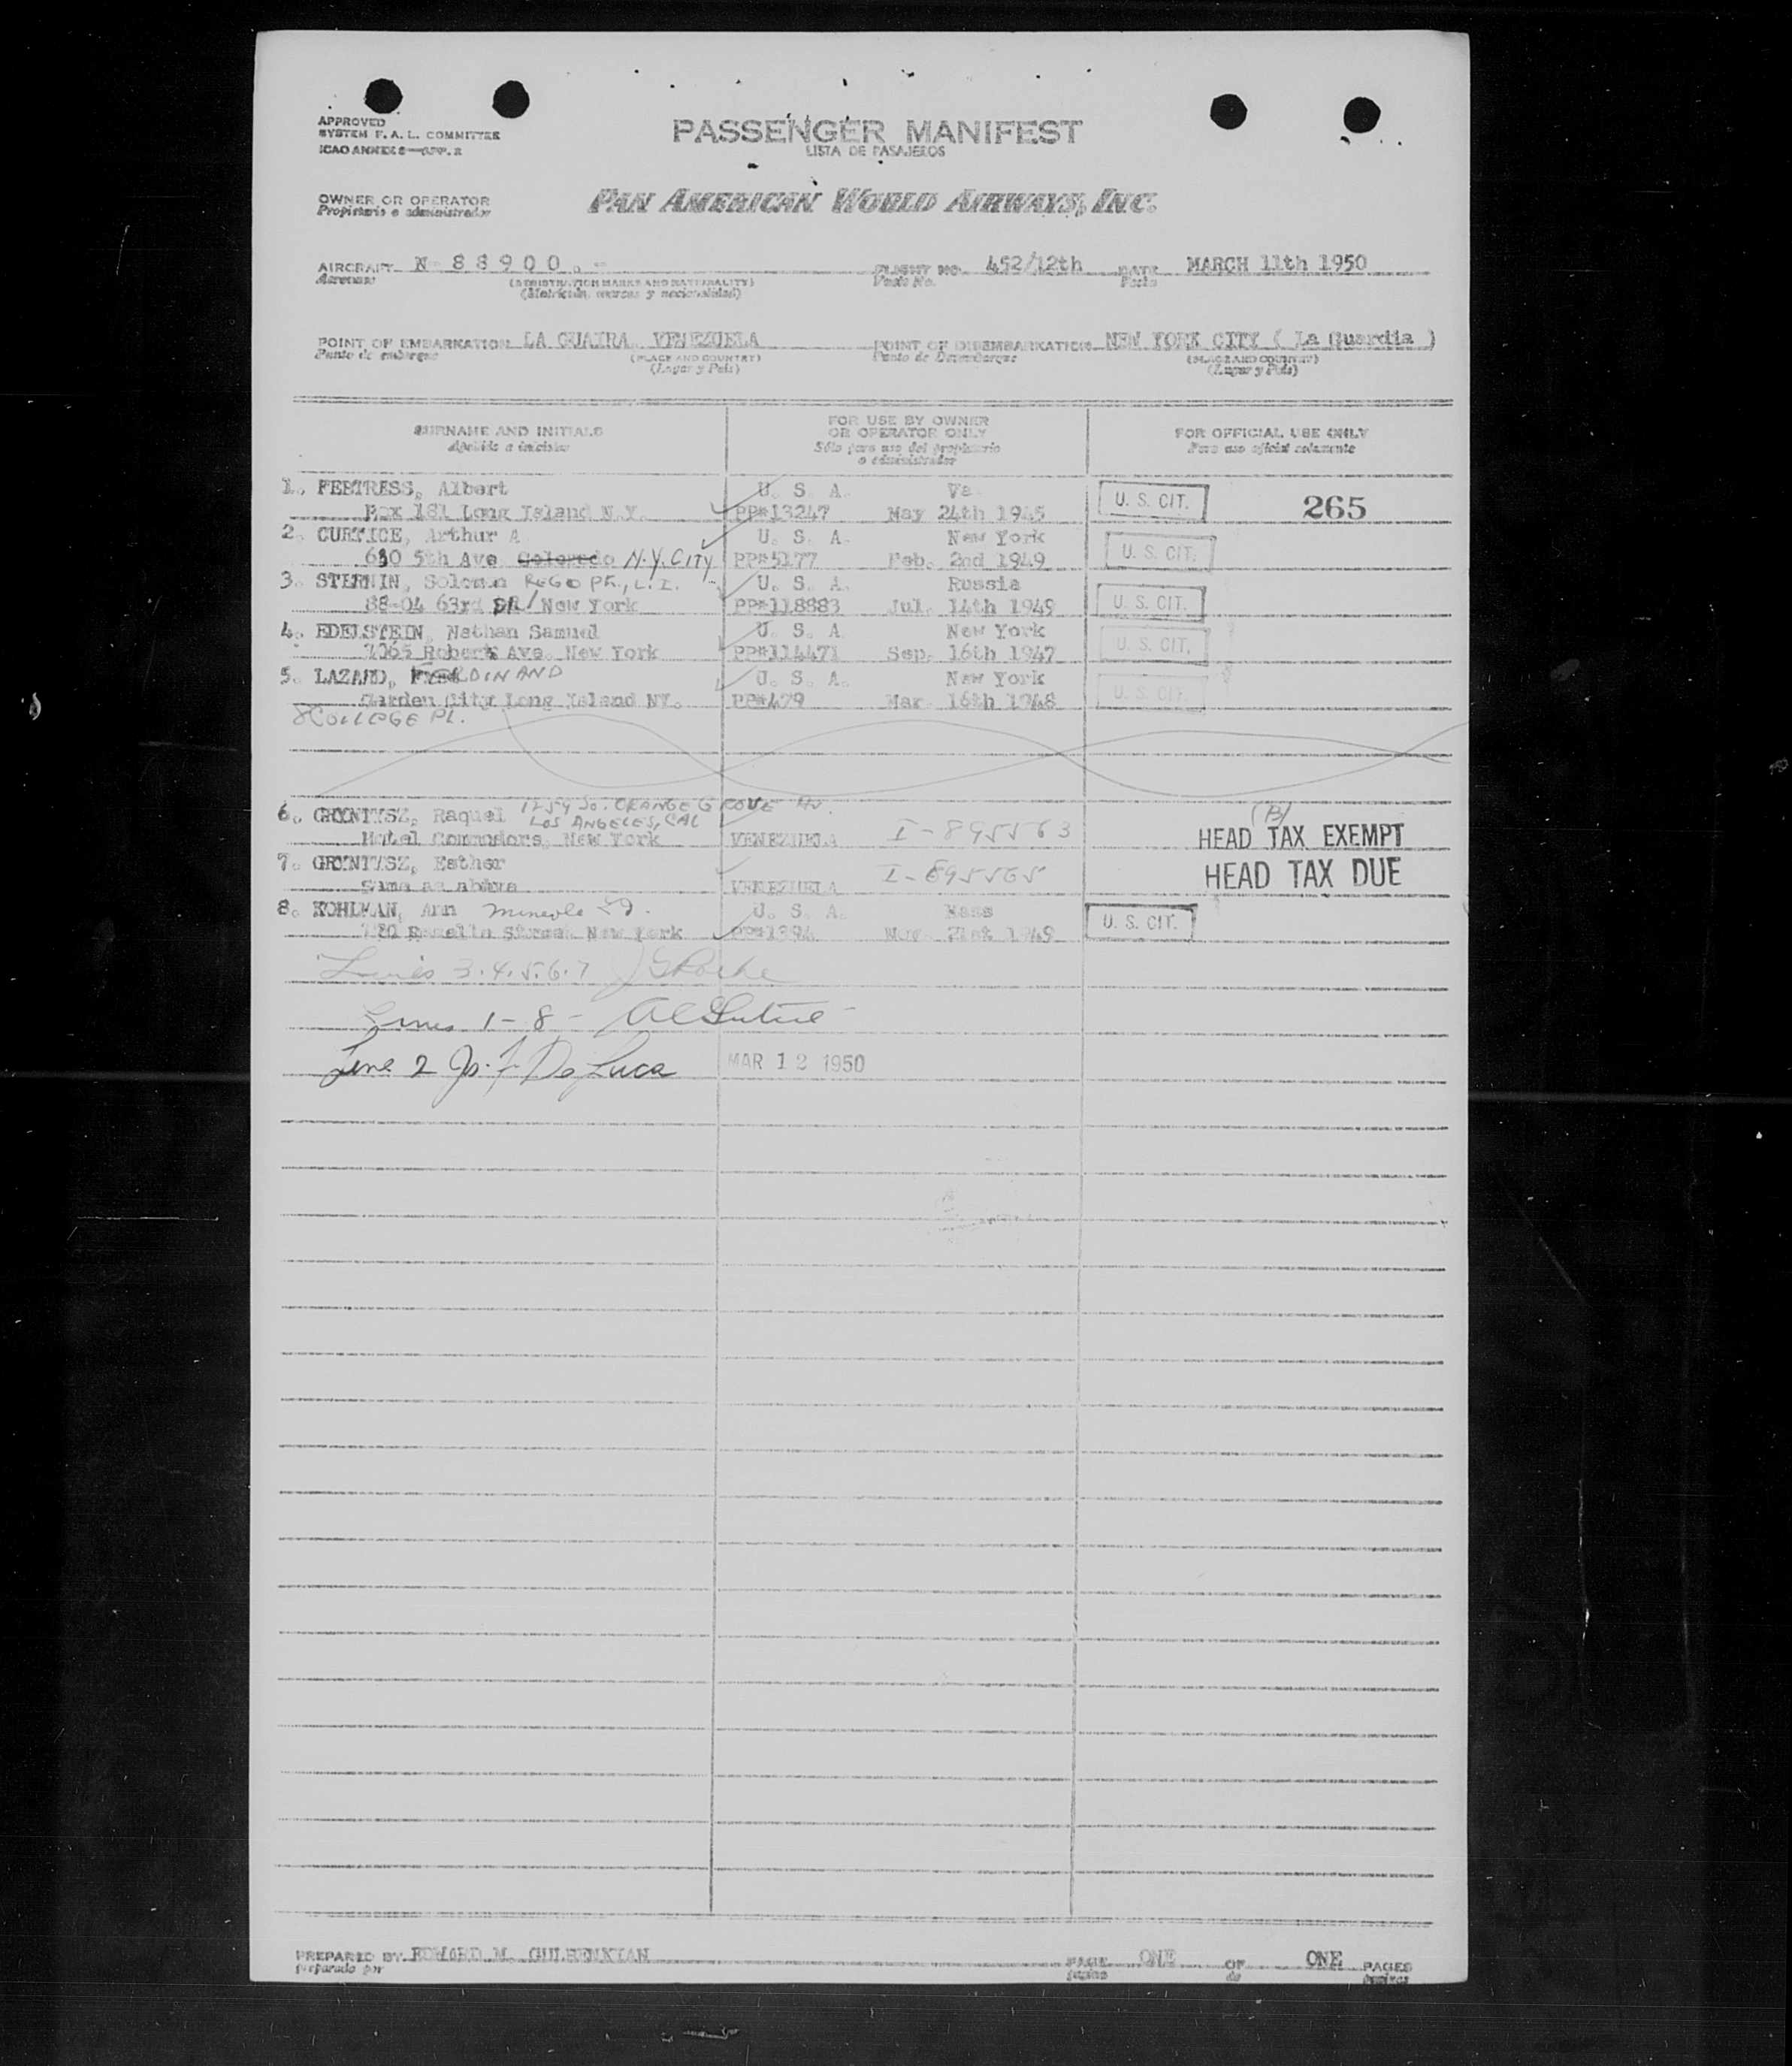 APPROVED
SYSTEM F. A. L. COMMITTEE
ICAO ANNEX 9—APP. 2
PASSENGER MANIFEST
LISTA DE PASAJEROS
OWNER OR OPERATOR
Propietario o administrador
PAN AMERICAN WORLD AIRWAYS, INC.
AIRCRAFT N- 88900. - FLIGHT NO. 452/12th DATE MARCH 11th 1950
Aeronave (REGISTRATION MARKS AND NATIONALITY) Vuelo No. Fecha
(Matrícula, marcas y nacionalidad)
POINT OF EMBARKATION LA GUAIRA, VENEZUELA POINT OF DISEMBARKATION NEW YORK CITY ( La Guardia )
Punto de embarque (PLACE AND COUNTRY) Punto de Desembarque (PLACE AND COUNTRY)
(Lugar y País) (Lugar y País)
SURNAME AND INITIALS FOR USE BY OWNER OR OPERATOR ONLY FOR OFFICIAL USE ONLY
Apellido e iniciales Sólo para uso del propietario o administrador Para uso oficial solamente
1. FEBTRESS, Albert U. S. A. Va. U. S. CIT. 265
Box 181 Long Island N.Y. PP#13247 May 24th 1945
2. CURTICE, Arthur A U. S. A. New York U. S. CIT.
630 5th Ave Colorado N.Y. CITY PP#5177 Feb. 2nd 1949
3. STERNIN, Solomon REGO PK., L.I. U. S. A. Russia
88-04 63rd DR/ New York PP#118883 Jul. 14th 1949 U. S. CIT.
4. EDELSTEIN, Nathan Samuel U. S. A. New York U. S. CIT.
Robert Ave. New York PP#114471 Sep. 16th 1947
5. LAZARD, FERDINAND U. S. A. New York U. S. CIT.
Garden City Long Island NY. PP#479 Mar. 16th 1948
8 COLLEGE PL.
6. Raquel 1254 SO. ORANGE GROVE AV. (B)
LOS ANGELES, CAL
Hotel Commodore, New York VENEZUELA I-895563 HEAD TAX EXEMPT
7. Esther HEAD TAX DUE
Same as above VENEZUELA I-895565
8. KOHLMAN, Ann Mineola U. S. A. Mass U. S. CIT.
Street New York PP#1394 Nov. 21st 1949
Lines 3.4.5.6.7
Lines 1-8-
Line 2 Jos. F. De Luca MAR 12 1950
PREPARED BY EDWARD M. GULBENKIAN PAGE ONE OF ONE PAGES
preparado por página de páginas